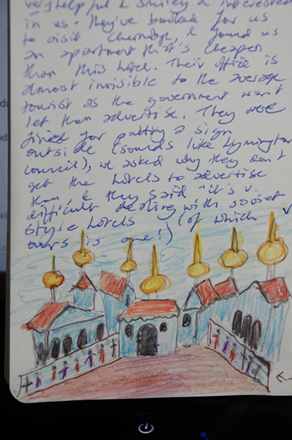 very helpful & smiley & interested
in us. They've invited for us
to visit Chernobyl, & found us
an apartment that's cheaper
than this hotel. Their office is
almost invisible to the average
tourist as the government won't
let them advertise. They were
fined for putting a sign
outside (sounds like Lymington
Council), we asked why they don't
get the hotels to advertise
them & they said "it's v.
difficult dealing with soviet
style hotels (of which
ours is one!)